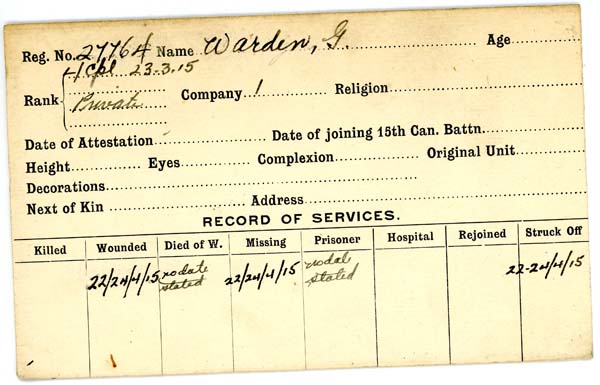 Reg. No. 27764 Name Warden, G. Age
L/Cpl 23-3.15
Rank Private Company 1 Religion
Date of Attestation Date of joining 15th Can. Battn.
Height Eyes Complexion Original Unit
Decorations
Next of Kin Address
RECORD OF SERVICES.
Killed Wounded Died of W. Missing Prisoner Hospital Rejoined Struck Off
22/24/4/15 no date stated 22/24/4/15 no date stated 22-24/4/15